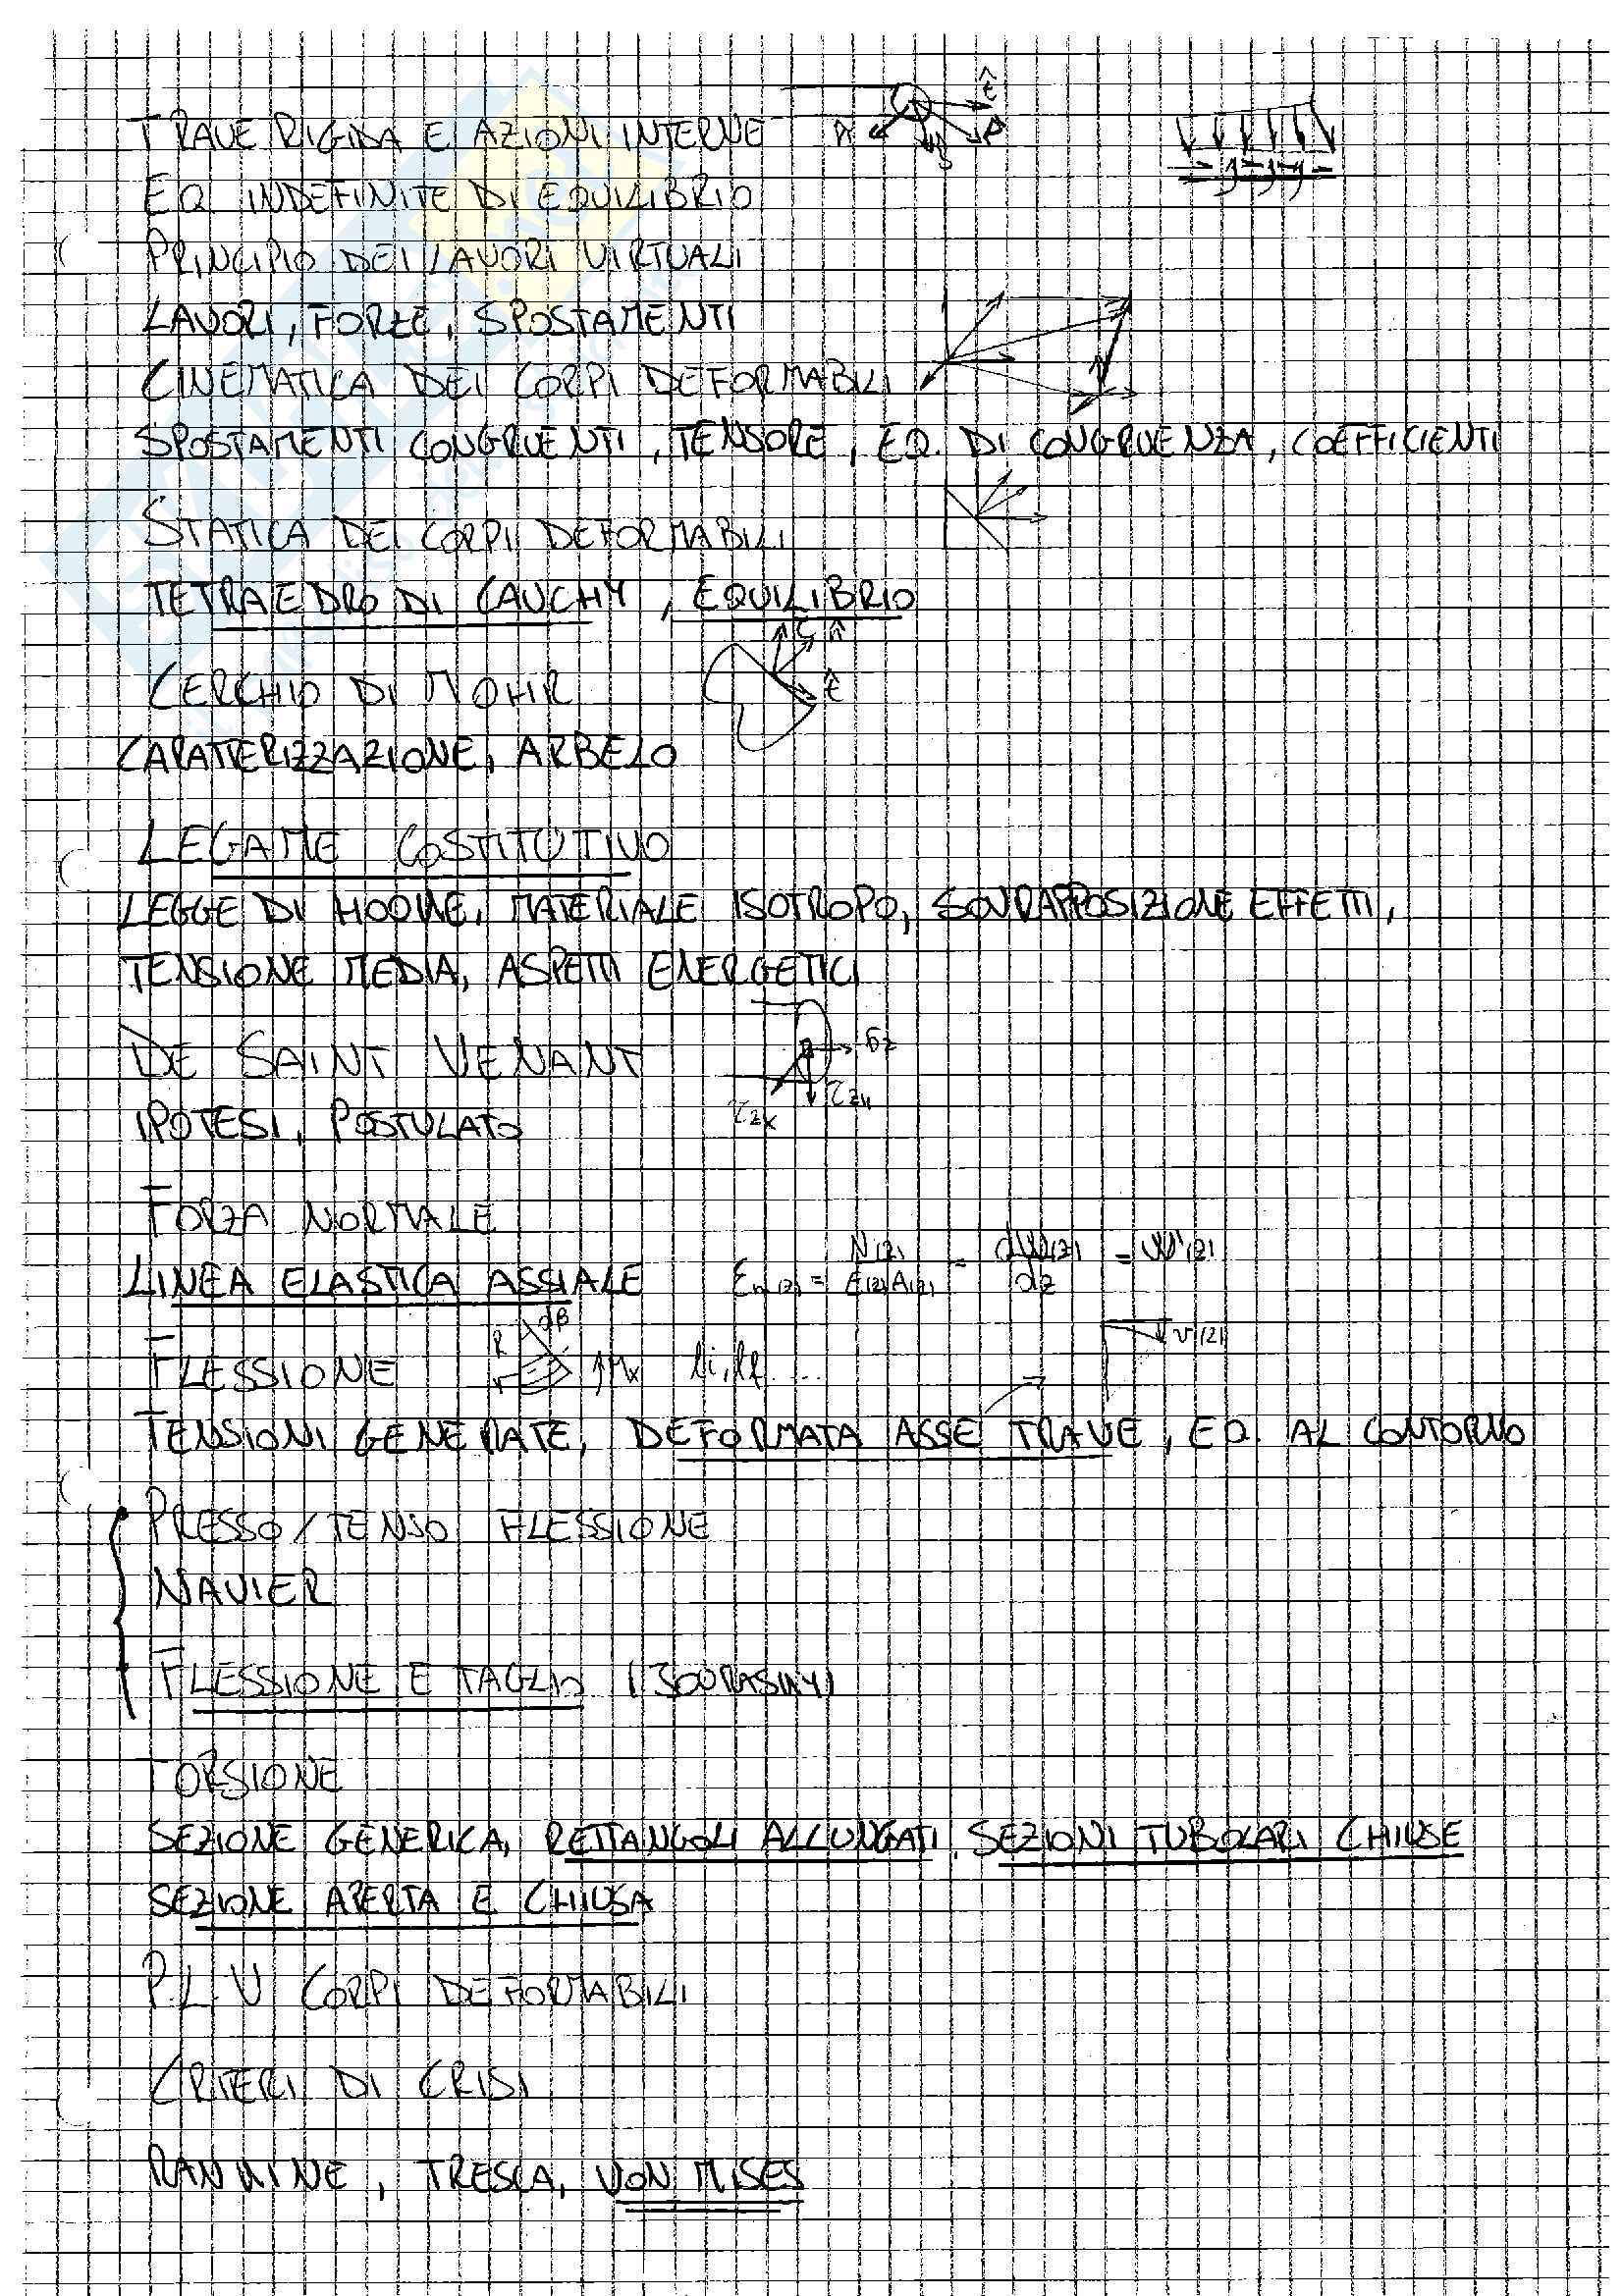 TRAVE RIGIDA E AZIONI INTERNE
EQ INDEFINITE DI EQUILIBRIO
PRINCIPIO DEI LAVORI VIRTUALI
LAVORI, FORZE, SPOSTAMENTI
CINEMATICA DEI CORPI DEFORMABILI
SPOSTAMENTI CONGRUENTI, TENSORE, EQ. DI CONGRUENZA, COEFFICIENTI
STATICA DEI CORPI DEFORMABILI
TETRAEDRO DI CAUCHY, EQUILIBRIO
CERCHIO DI MOHR
CARATTERIZZAZIONE, ARBELO
LEGAME COSTITUTIVO
LEGGE DI HOOKE, MATERIALE ISOTROPO, SOVRAPPOSIZIONE EFFETTI,
TENSIONE MEDIA, ASPETTI ENERGETICI
DE SAINT VENANT
σz
τzx τzy
IPOTESI, POSTULATO
FORZA NORMALE
LINEA ELASTICA ASSIALE εn(z) = N(z)/E(z)A(z) = dW(z)/dz = W'(z)
R dβ
FLESSIONE Mx li, lf .... v(z)
TENSIONI GENERATE, DEFORMATA ASSE TRAVE, EQ. AL CONTORNO
PRESSO/TENSO FLESSIONE
NAVIER
FLESSIONE E TAGLIO (JOURASKY)
TORSIONE
SEZIONE GENERICA, RETTANGOLI ALLUNGATI, SEZIONI TUBOLARI CHIUSE
SEZIONE APERTA E CHIUSA
P.L.V CORPI DEFORMABILI
CRITERI DI CRISI
RANKINE, TRESCA, VON MISES